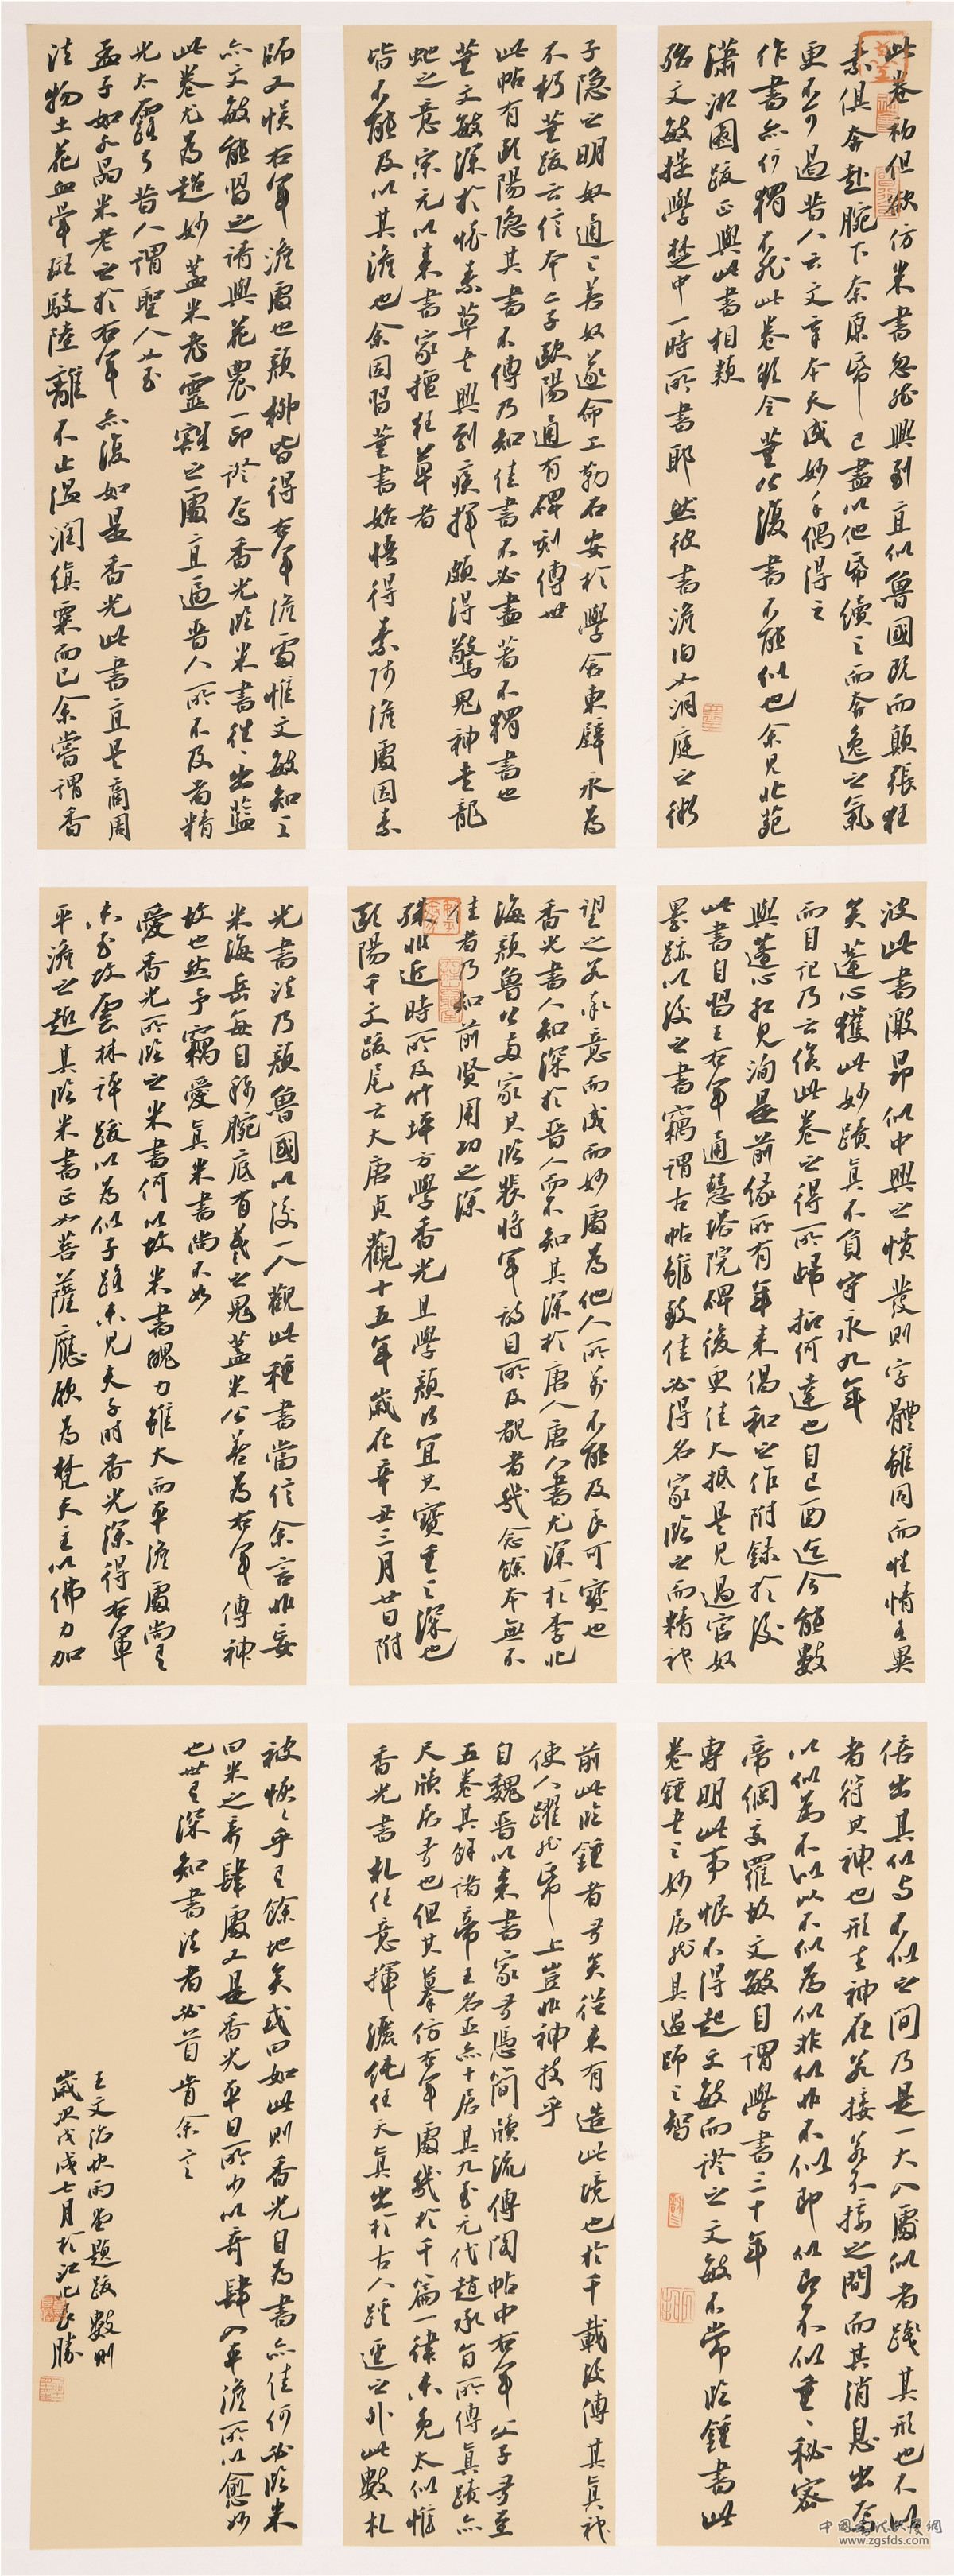 此卷初但欲仿米書忽然興到直似魯國既而顛張狂
素俱奔赴腕下奈原紙已盡以他紙續之而奔逸之氣
更不可過昔人云文章本天成妙手偶得之
作書亦爾獨不然此卷設令董公復書不能似也余見北苑
瀟湘圖跋正與此書相類
殆文敏提學楚中一時所書耶然彼書澹泊如洞庭之微
波此書激昂似中興之憤發則字體雖同而性情各異
矣蓬心獲此妙蹟真不負守永九年
而自記乃云俟此卷之得所歸抑何達也自己酉迄今能數
與蓬心相見洵是前緣所有年來倡和之作附錄於後
此書自習王右軍通慧塔院碑後更佳大抵是見過官奴
墨跡以後之書竊謂古帖雖致佳必得名家臨之而精神
倍出其似與不似之間乃是一大入處似者踐其形也不似
者符其神也形去神在若接若不接之間而其消息出焉
以似為不似以不似為似非似非不似即似即不似重重秘密
帝網交羅故文敏自謂學書三十年
專明此事恨不得起文敏而證之文敏不常臨鍾書此
卷鍾書之妙居然具過師之智
子隱之明奴適之善奴遂命工勒石安於學舍東壁永為
不朽董跋云信本二子歐陽通有碑刻傳世
此帖有歐陽隱其書不傳乃知佳書不必盡著不獨書也
董文敏深於懷素草書興到疾揮頗得驚鬼神走龍
虵之意宋元以來書家擅狂草者
皆不能及以其澹也余因習董書始悟得素師澹處因素
望之若永意而成而妙處為他人所萬不能及良可寶也
香光書人知深於晉人而不知其深於唐人唐人書尤深於李北
海顏魯公兩家其臨裴將軍詩目所及覩者幾念餘本無不
佳者乃知前賢用功之深
殊非近時所及竹坪方學香光且學顏以宜其寶重之深也
歐陽千文跋尾云大唐貞觀十五年歲在辛丑三月廿日附
前此臨鍾者無矣從來有造此境也於千載後傳其真神
使人躍然紙上豈非神技乎
自魏晉以來書家無憑簡牘流傳閣帖中右軍父子無至
五卷其餘諸帝王名臣亦十居其九至元代趙承旨所傳真蹟亦
尺牘居多也但其摹仿右軍處幾於千篇一律未免太似惟
香光書札任意揮灑純任天真出於古人蹊逕之外此數札
師又悞右軍澹處也顏柳皆得右軍澹處惟文敏知之
亦文敏能習之請與花農一印證焉香光臨米書往往出藍
此卷尤為超妙蓋米老靈變之處直逼晉人所不及者精
光太露耳昔人謂聖人如
孟子如水晶米老之於右軍亦復如是香光此書直是商周
法物土花血暈斑駁陸離不止溫潤縝栗而已余嘗謂香
光書法乃顏魯國以後一人觀此種書當信余言非妄
米海岳每自矜腕底有羲之鬼蓋米公善為右軍傳神
故也然予竊愛真米書尚不如
愛香光所臨之米書何以故米書魄力雖大而平澹處尚有
未至故雲林評跋以為似子路未見夫子時香光深得右軍
平澹之趣其臨米書正如菩薩應願為梵天主以佛力加
被恢恢乎有餘地矣或曰如此則香光自為書亦佳何必臨米
曰米之奔肆處又是香光平日所少以奇肆入平澹所以愈妙
也世有深知書法者必首肯余言
王文治快雨堂題跋數則
歲次戊戌七月於江北良勝
中國當代書法網
www.zgsfds.com